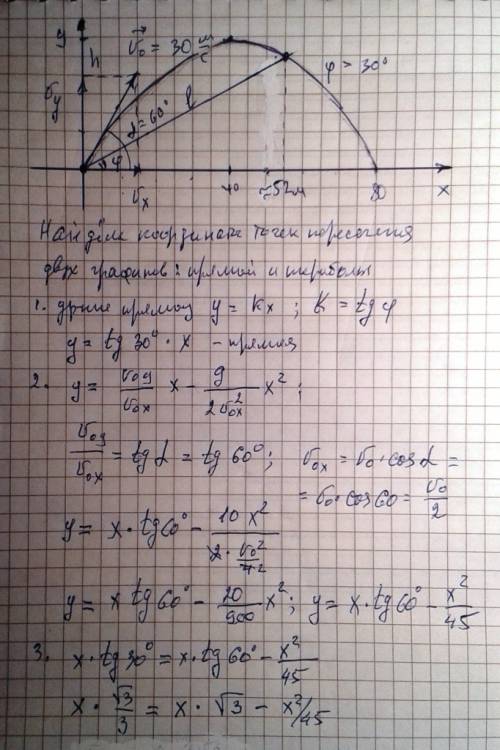 y
h
v⃗₀ = 30 м/с
φ = 30°
v_y
α = 60°
l
φ
v_x
40
≈52м
80
x
Найдём координаты точек пересечения
двух графиков: прямой и параболы
1. прямой y = kx ; k = tg φ
y = tg 30° · x – прямая
2. y = v₀y/v₀x x − g/2v₀x² x² ;
v₀y/v₀x = tg α = tg 60° ; v₀x = v₀ · cos α =
= v₀ · cos 60 = v₀/2
y = x · tg 60° − 10 x²/(2 · v₀²/4)
y = x tg 60° − 20/900 x² ; y = x · tg 60° − x²/45
3. x · tg 30° = x · tg 60° − x²/45
x · √3/3 = x · √3 − x²/45